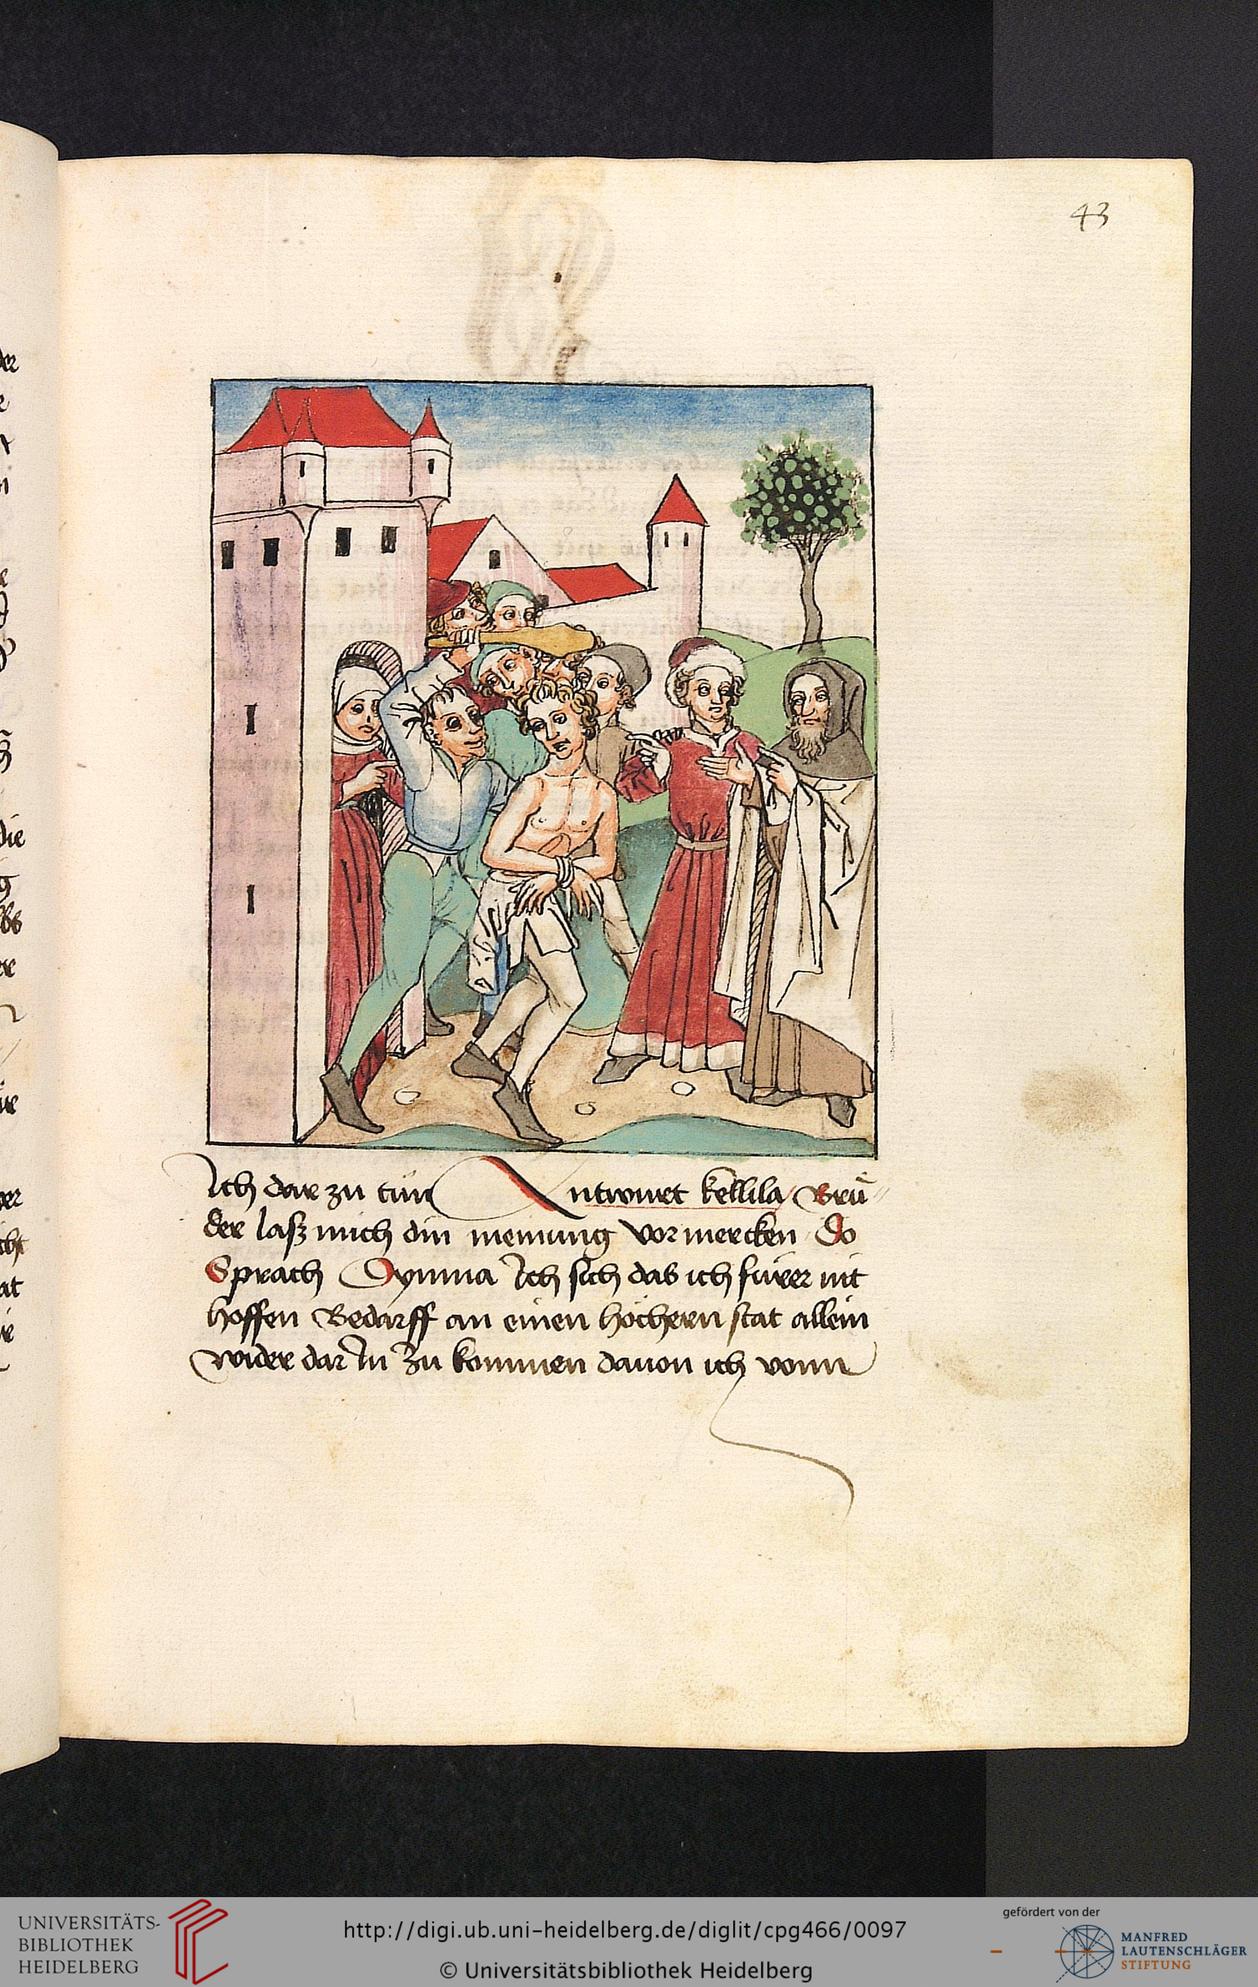 43
Ich dar zu tun Antwurt kellila Brů„
der lasz mich din meinung vor mercken Do
Sprach Dymna Ich sich das ich fürer nit
hoffen Bedarff an einen höchern stat allein
wider dar In zu kommen dauon ich vonn
UNIVERSITÄTS-
BIBLIOTHEK
HEIDELBERG
http://digi.ub.uni-heidelberg.de/diglit/cpg466/0097
© Universitätsbibliothek Heidelberg
gefördert von der
MANFRED
LAUTENSCHLÄGER
STIFTUNG